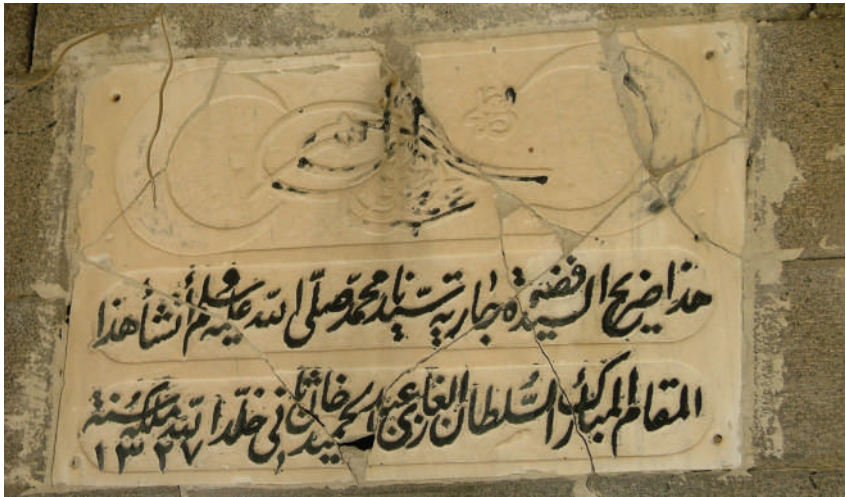 هذا ضريح السيدة فضة جارية سيدنا محمد صلى الله عليه وسلم أنشأ هذا
المقام المبارك السلطان الغازي عبد الحميد خان ثاني خلد الله ملكه سنة
١٣٢٧